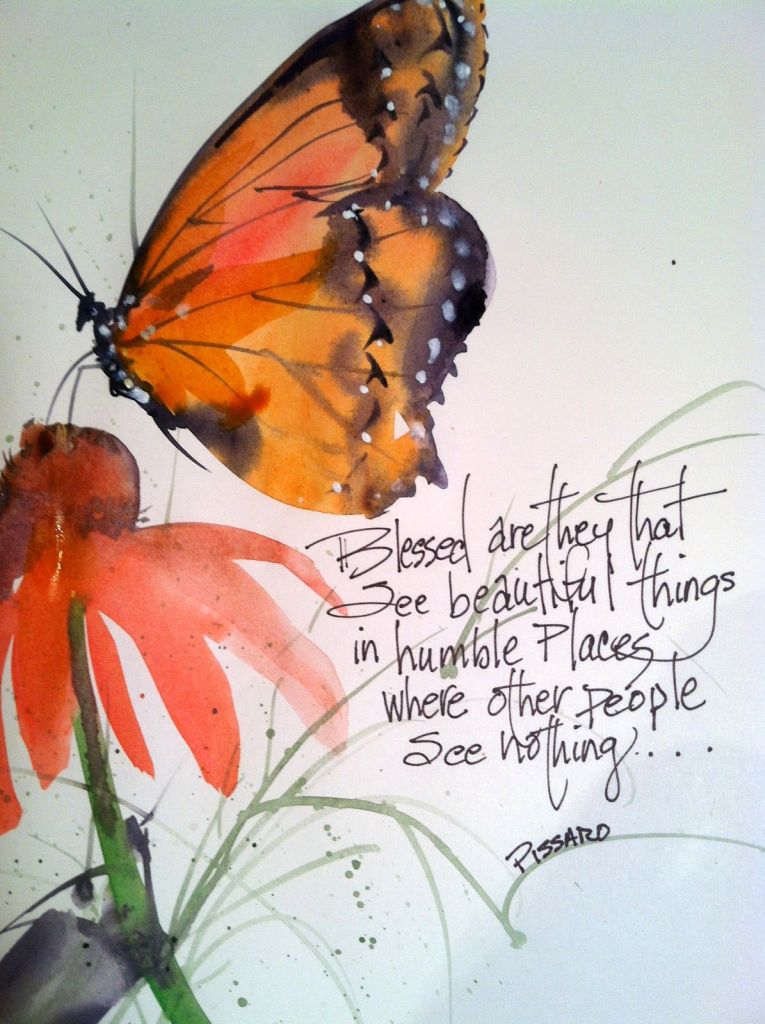 Blessed are they that
See beautiful things
in humble Places
where other people
See nothing....
PISSARO